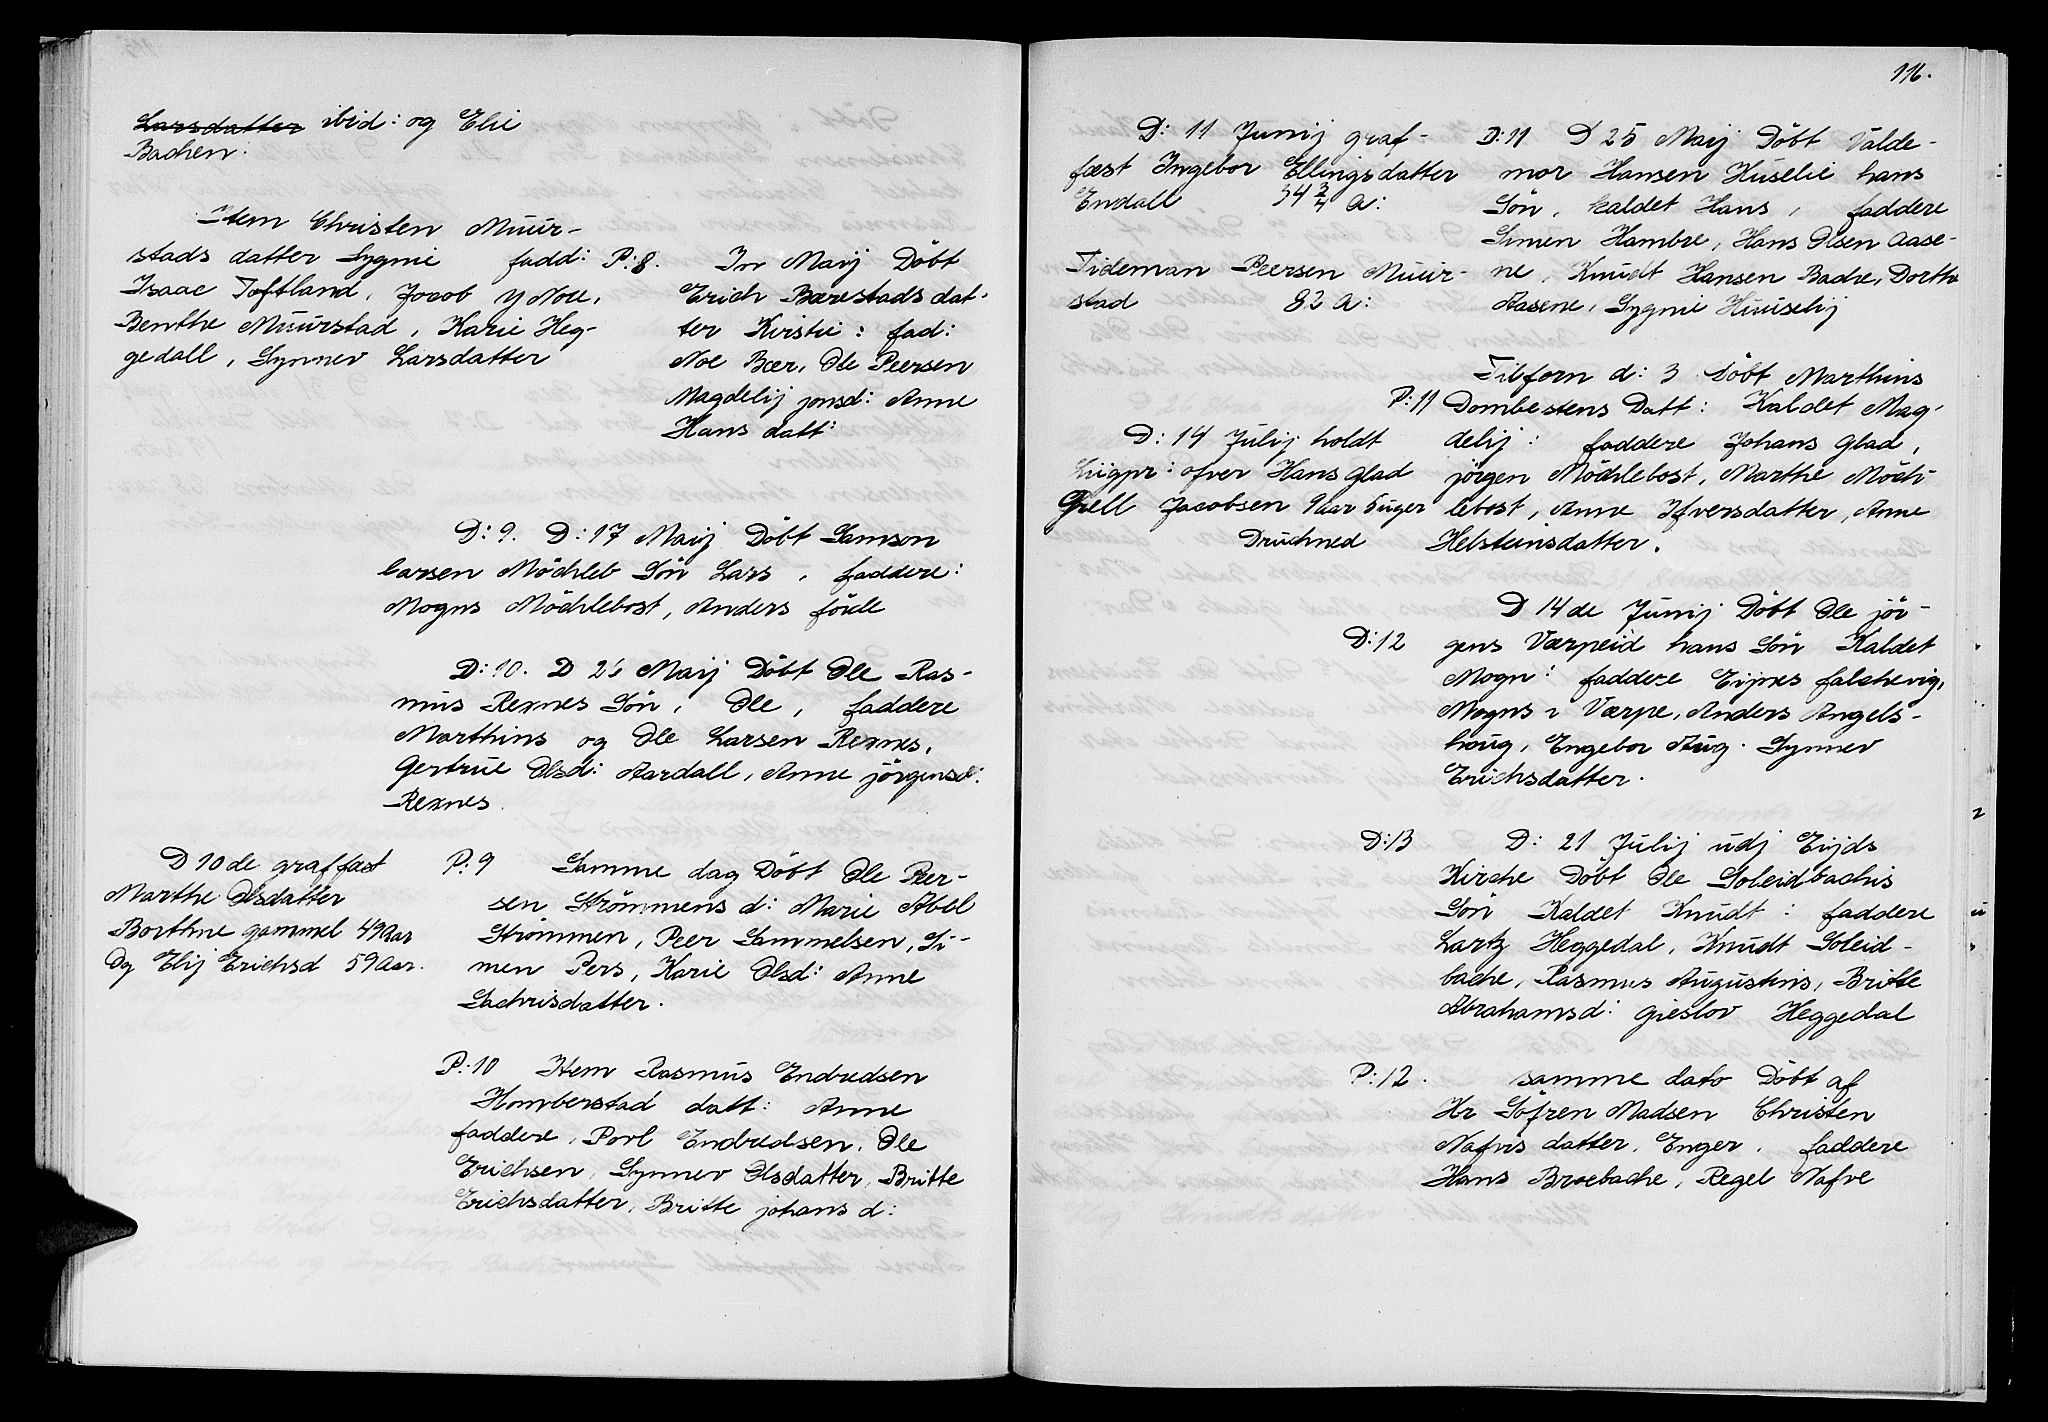 Larsdatter ibid: og Elie
Bachen:
Item Christen Muur-
stads datter Sygnie fadd:
Isaac Toftland, Jocob
Benthe Muurstad, Karie Heg-
gedall, Synnev Larsdatter
P: 8. In Maij Döbt
Erich Bærestads dat-
ter Kirstie: fad:
Noe Bær, Ole Peersen
Magdelij jonsd: Anne
Hans datt:
D: 9. D: 17 Maij Döbt Samson
Larsen Möchleb Sön Lars, faddere:
Mogns Möchlebost, Anders föele
D: 10. D 25 Maij Döbt Ole Ras-
mus Rexnes Sön, Ole, faddere
Marthins og Ole Larsen Rexnes,
Gertrue Olsd: Aardall, Anne jörgensd:
Rexnes.
D 10de graffæst
Marthe Olsdatter
Borthne gammel 49 Aar
Og Elij Erichsd 59 Aar.
P: 9 Samme dag Döbt Ole Peer-
sen Strömmens d: Marie Abel
Strömmen, Peer Sammelsen, Si-
men Pers, Karie Olsd: Anne
Sachrisdatter.
P: 10 Item Rasmus Endredsen
Homberstad datt: Anne
faddere, Porl Endredsen, Ole
Erichsen, Synnev Olsdatter, Britte
Erichsdatter, Britte johans d:
116.
D: 11 Junij graf-
fæst Ingebor Ellingsdatter
Endall 34 3/4 A:
Tideman Peersen Muur-
stad 82 A:
D: 14 Julij holdt
Liigpr: ofver Hans Glad
Grell Jacobsen 9 aar 6 uger
Druchned
D: 11 D 25 Maij Döbt Valde-
mor Hansen Huselie hans
Sön, kaldet Hans, faddere
Simen Hambre, Hans Olsen Aase-
ne, Knudt Hansen Bache, Dorthe
Aasene, Sygnie Huuselij
Tilforn d: 3 Döbt Marthins
P: 11 Dombestens Datt: Kaldet Mag-
delij: faddere Johans Glad,
jörgen Möchlebost, Marthe Möch-
lebost, Anne Ifversdatter, Anne
Helsteinsdatter.
D 14de Junij Döbt Ole jör-
D: 12 gens Værpeid hans Sön Kaldet
Mogn: faddere Eijnes falchevig,
Mogns i Værpe, Anders Angels-
houg, Engebor Aug. Synnev
Erichsdatter.
D: 13 D: 21 Julij udj Eijds
Kirche Döbt Ole Soleidbachis
Sön Kaldet Knudt: faddere
Lartz Heggedal, Knudt Soleid-
bache, Rasmus Augustins, Britte
Abrahamsd: Gieslov Heggedal
P: 12. samme dato Döbt af
Hr Söfren Madsen Christen
Nafvis datter, Enger, faddere
Hans Broebache, Regel Nafve